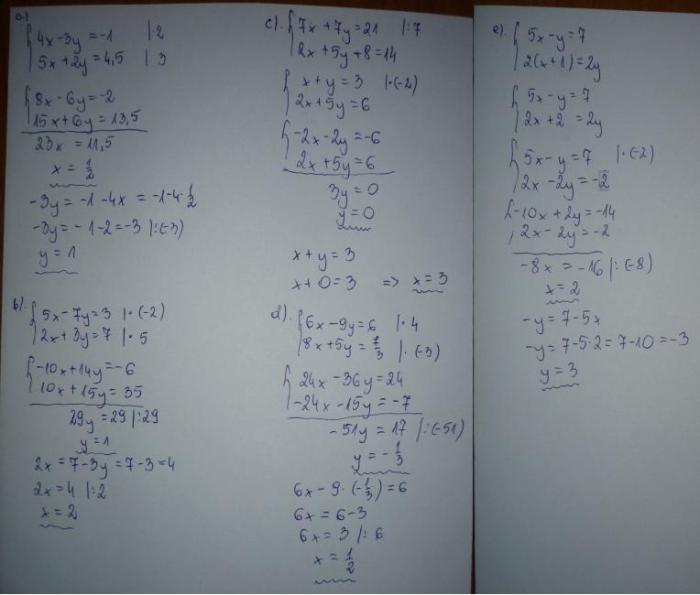 a)
4x-3y=-1 |·2
5x+2y=4,5 |·3
8x-6y=-2
15x+6y=13,5
23x=11,5
x=1/2
-3y=-1-4x=-1-4·1/2
-3y=-1-2=-3 |:(-3)
y=1
b).
5x-7y=3 |·(-2)
2x+3y=7 |·5
-10x+14y=-6
10x+15y=35
29y=29 |:29
y=1
2x=7-3y=7-3=4
2x=4 |:2
x=2
c).
7x+7y=21 |:7
2x+5y+8=14
x+y=3 |·(-2)
2x+5y=6
-2x-2y=-6
2x+5y=6
3y=0
y=0
x+y=3
x+0=3 => x=3
d).
6x-9y=6 |·4
8x+5y=7/3 |·(-3)
24x-36y=24
-24x-15y=-7
-51y=17 |:(-51)
y=-1/3
6x-9·(-1/3)=6
6x=6-3
6x=3 |:6
x=1/2
e).
5x-y=7
2(x+1)=2y
5x-y=7
2x+2=2y
5x-y=7 |·(-2)
2x-2y=-2
-10x+2y=-14
2x-2y=-2
-8x=-16 |:(-8)
x=2
-y=7-5x
-y=7-5·2=7-10=-3
y=3